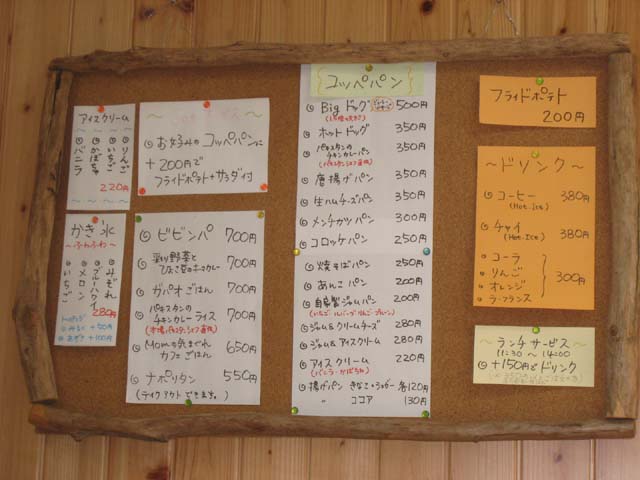 アイスクリーム
◎りんご
◎いちご
◎かぼちゃ
◎バニラ
220円
かき氷
～ふわふわ～
◎みぞれ
◎ブルーハワイ
◎メロン
◎いちご
280円
トッピング
◎みるく +50円
◎あずき +100円
◎お好みのコッペパンに
+200円で
フライドポテト+サラダ付
◎ビビンバ 700円
◎彩り野菜と
ひよこ豆のキーマカレー 700円
◎ガパオごはん 700円
◎パキスタンの
チキンカレーライス 700円
(本場パキスタンシェフ直伝)
◎Momの気まぐれ
カフェごはん 650円
◎ナポリタン 550円
(テイクアウトできます。)
コッペパン
◎Big ドッグ 500円
◎ホットドッグ 350円
◎パキスタンの
チキンカレーパン 350円
(パキスタンシェフ直伝)
◎唐揚げパン 350円
◎生ハムチーズパン 350円
◎メンチカツパン 300円
◎コロッケパン 250円
◎焼そばパン 250円
◎あんこパン 200円
◎自家製ジャムパン 200円
(いちご・ルバーブ・りんご・プルーン)
◎ジャム&クリームチーズ 280円
◎ジャム&アイスクリーム 280円
◎アイスクリーム 220円
(バニラ・かぼちゃ)
◎揚げパン きなこ・シュガー 各120円
〃 ココア 130円
フライドポテト
200円
～ドリンク～
◎コーヒー 380円
(Hot.Ice)
◎チャイ 380円
(Hot.Ice)
◎コーラ
◎りんご
◎オレンジ
◎ラ・フランス
300円
～ランチサービス～
11:30～14:00
◎+150円でドリンク